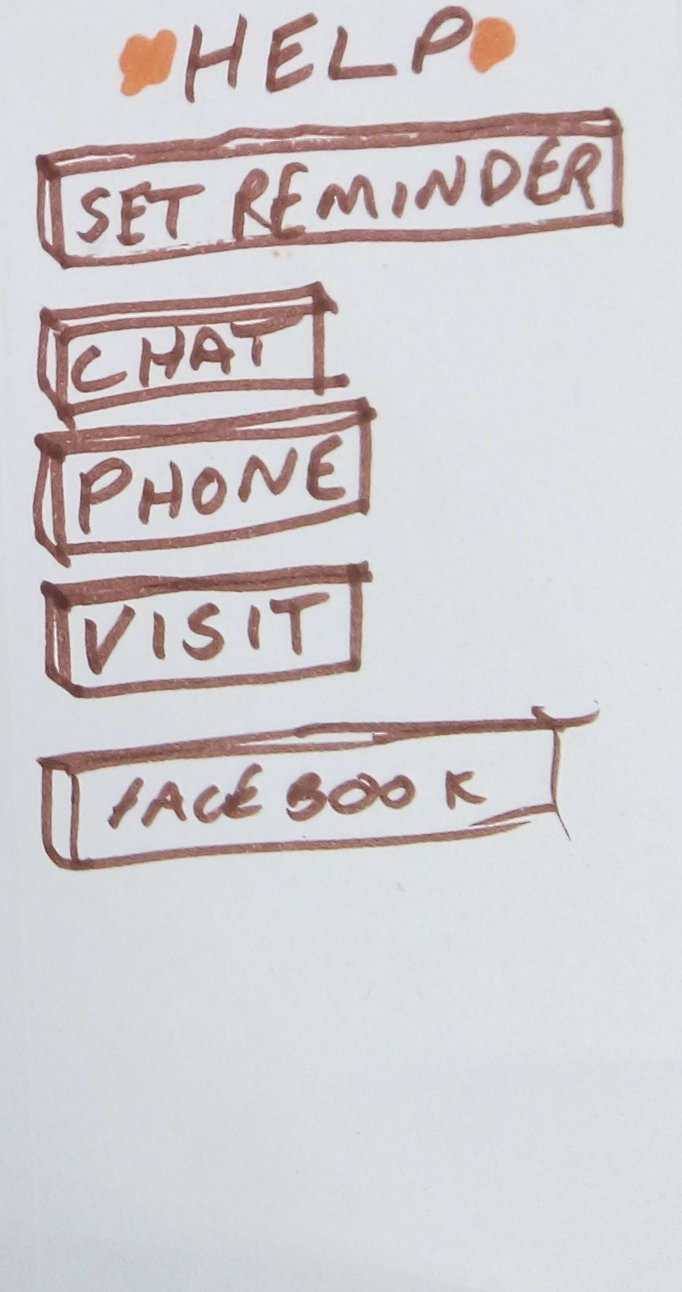 HELP
SET REMINDER
CHAT
PHONE
VISIT
FACEBOOK